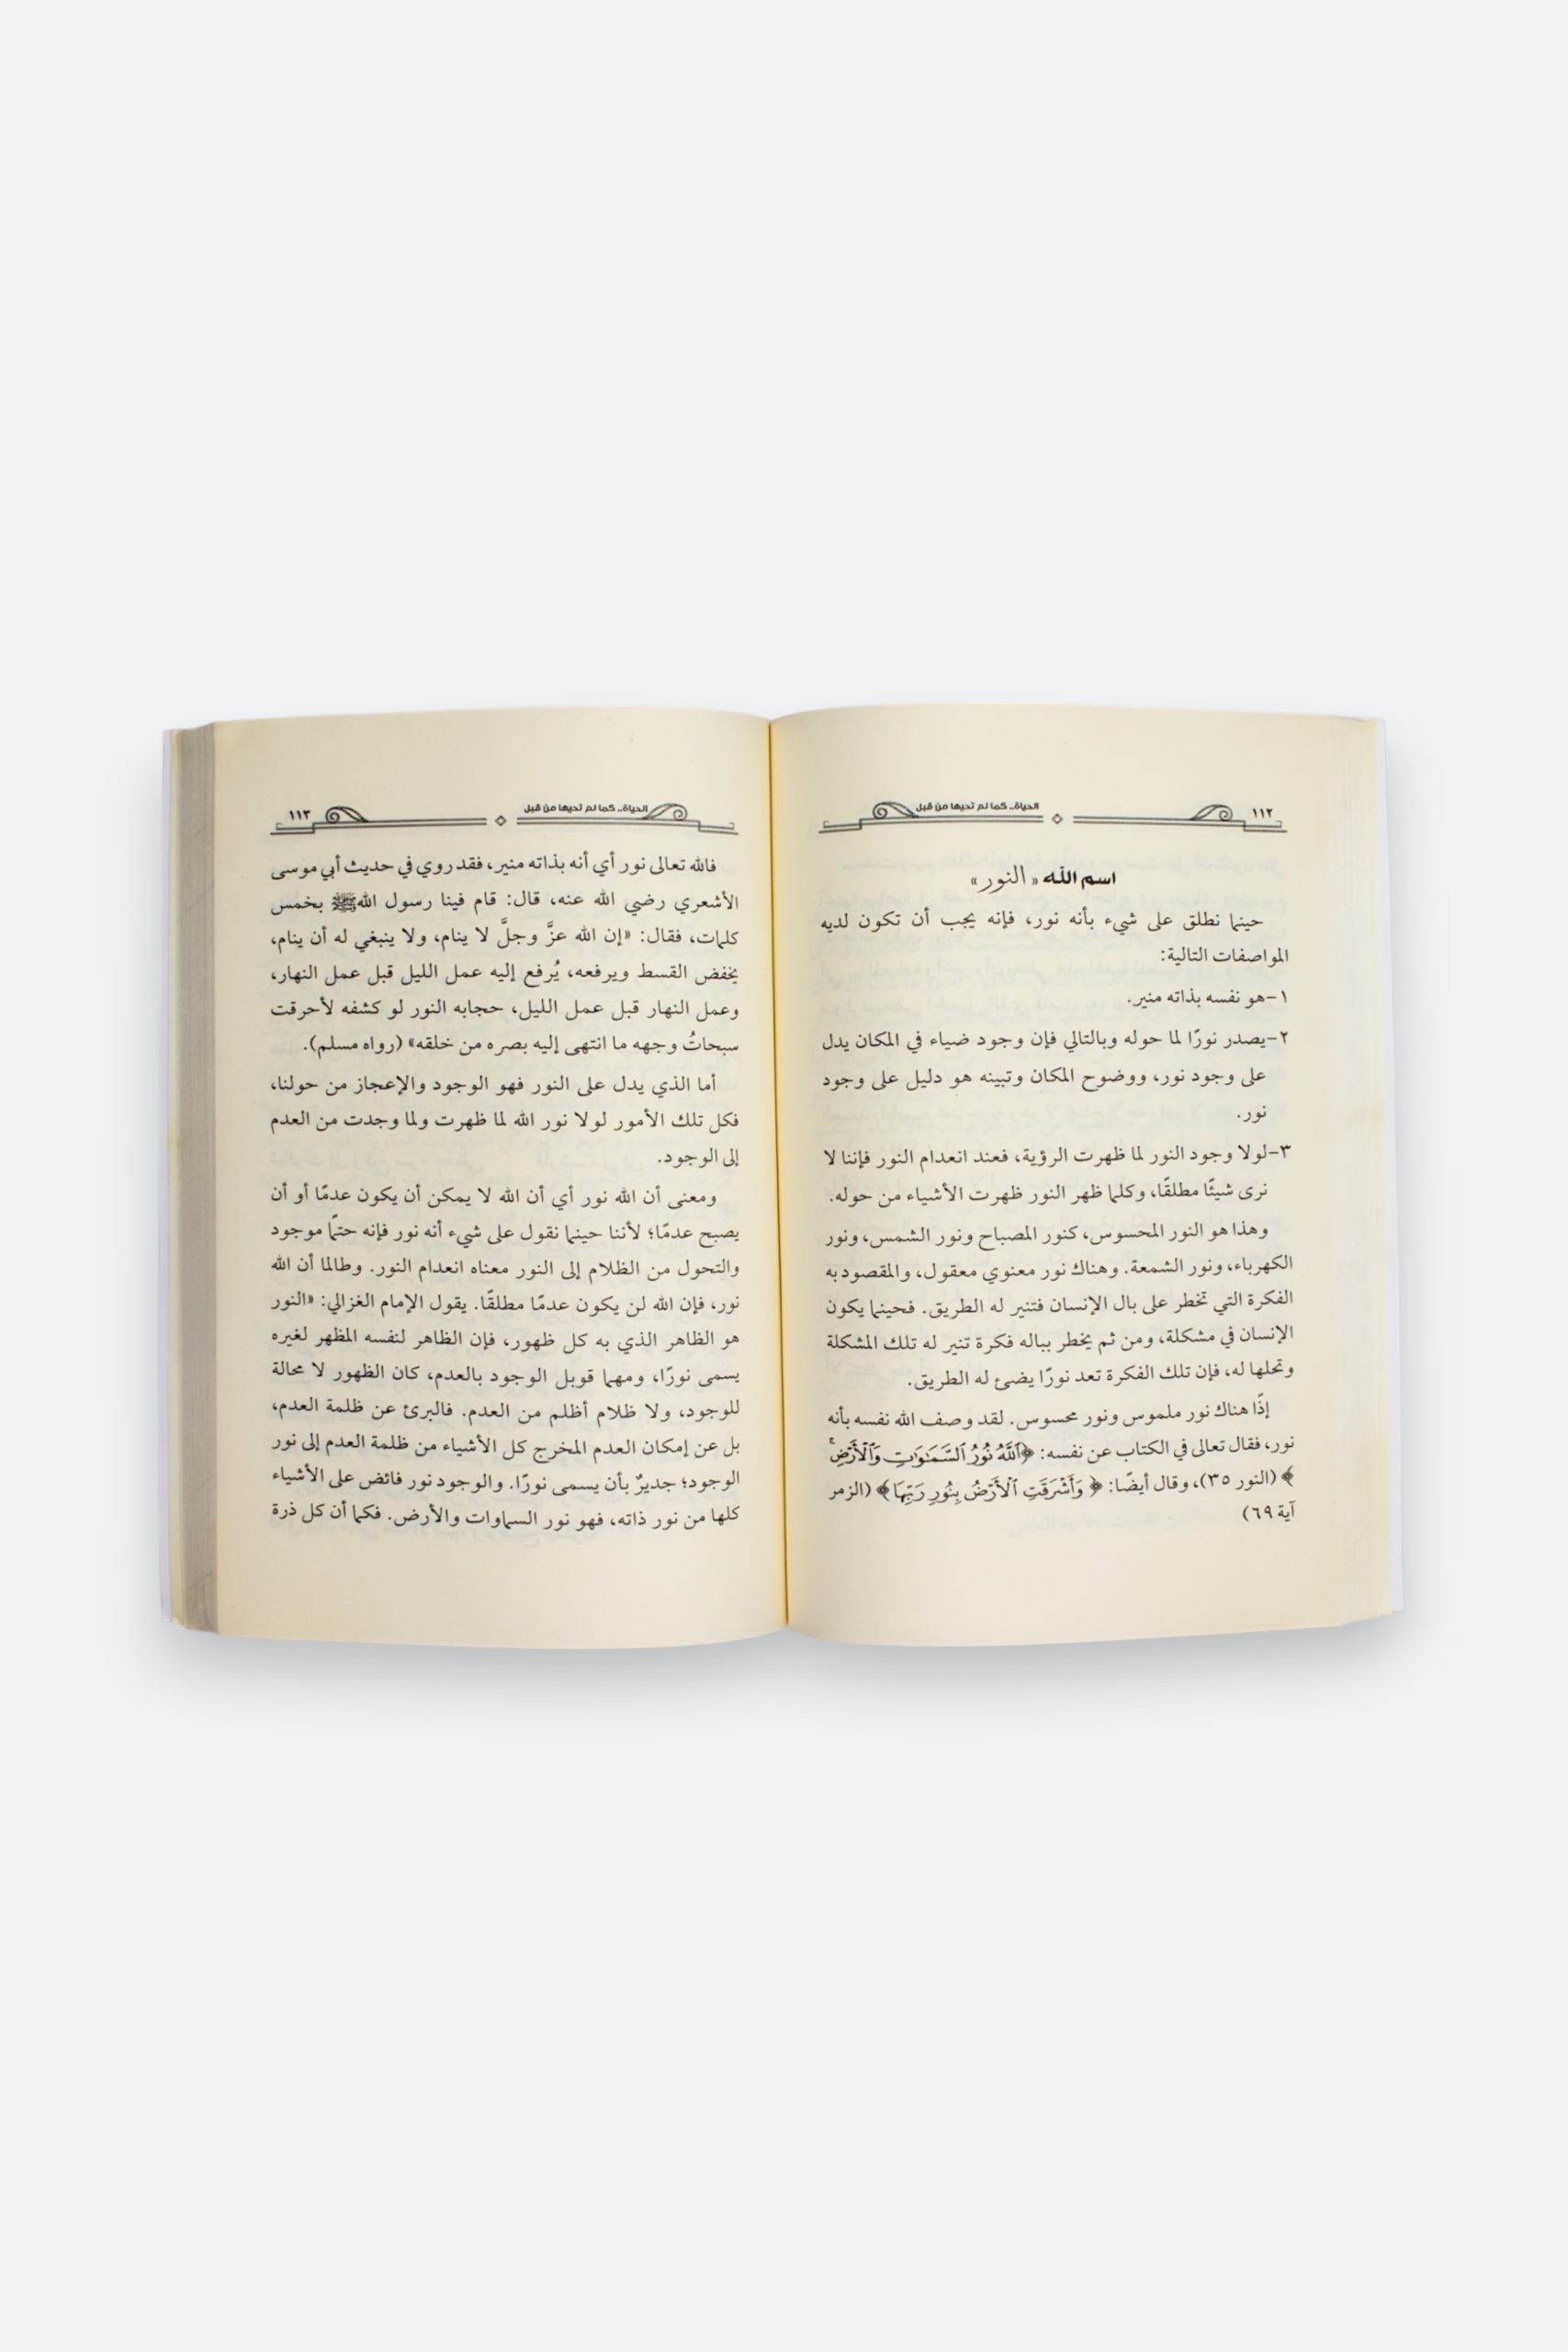 ١١٢
الحياة.. كما لم تحيها من قبل
اسم الله « النور»
حينما نطلق على شيء بأنه نور، فإنه يجب أن تكون لديه
المواصفات التالية:
١-هو نفسه بذاته منير.
٢-يصدر نورًا لما حوله وبالتالي فإن وجود ضياء في المكان يدل
على وجود نور، ووضوح المكان وتبينه هو دليل على وجود
نور.
٣-لولا وجود النور لما ظهرت الرؤية، فعند انعدام النور فإننا لا
نرى شيئًا مطلقًا، وكلما ظهر النور ظهرت الأشياء من حوله.
وهذا هو النور المحسوس، كنور المصباح ونور الشمس، ونور
الكهرباء، ونور الشمعة. وهناك نور معنوي معقول، والمقصود به
الفكرة التي تخطر على بال الإنسان فتنير له الطريق. فحينما يكون
الإنسان في مشكلة، ومن ثم يخطر بباله فكرة تنير له تلك المشكلة
وتحلها له، فإن تلك الفكرة تعد نورًا يضئ له الطريق.
إذًا هناك نور ملموس ونور محسوس. لقد وصف الله نفسه بأنه
نور، فقال تعالى في الكتاب عن نفسه: ﴿ٱللَّهُ نُورُ ٱلسَّمَٰوَٰتِ وَٱلْأَرْضِ ۚ
﴾ (النور ٣٥)، وقال أيضًا: ﴿ وَأَشْرَقَتِ ٱلْأَرْضُ بِنُورِ رَبِّهَا ﴾ (الزمر
آية ٦٩)
الحياة.. كما لم تحيها من قبل
١١٣
فالله تعالى نور أي أنه بذاته منير، فقد روي في حديث أبي موسى
الأشعري رضي الله عنه، قال: قام فينا رسول الله ﷺ بخمس
كلمات، فقال: «إن الله عزَّ وجلَّ لا ينام، ولا ينبغي له أن ينام،
يخفض القسط ويرفعه، يُرفع إليه عمل الليل قبل عمل النهار،
وعمل النهار قبل عمل الليل، حجابه النور لو كشفه لأحرقت
سبحاتُ وجهه ما انتهى إليه بصره من خلقه» (رواه مسلم).
أما الذي يدل على النور فهو الوجود والإعجاز من حولنا،
فكل تلك الأمور لولا نور الله لما ظهرت ولما وجدت من العدم
إلى الوجود.
ومعنى أن الله نور أي أن الله لا يمكن أن يكون عدمًا أو أن
يصبح عدمًا؛ لأننا حينما نقول على شيء أنه نور فإنه حتمًا موجود
والتحول من الظلام إلى النور معناه انعدام النور. وطالما أن الله
نور، فإن الله لن يكون عدمًا مطلقًا. يقول الإمام الغزالي: «النور
هو الظاهر الذي به كل ظهور، فإن الظاهر لنفسه المظهر لغيره
يسمى نورًا، ومهما قوبل الوجود بالعدم، كان الظهور لا محالة
للوجود، ولا ظلام أظلم من العدم. فالبرئ عن ظلمة العدم،
بل عن إمكان العدم المخرج كل الأشياء من ظلمة العدم إلى نور
الوجود؛ جديرٌ بأن يسمى نورًا. والوجود نور فائض على الأشياء
كلها من نور ذاته، فهو نور السماوات والأرض. فكما أن كل ذرة